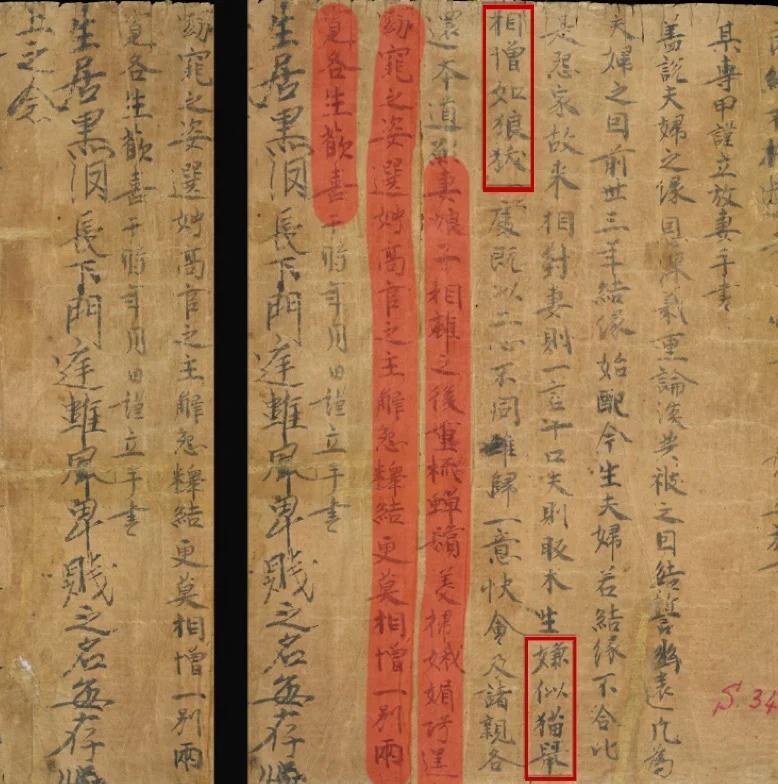 某專甲謹立放妻手書
蓋説夫婦之緣恩深義重論談共被之因結誓幽遠凡為
夫婦之因前世三年結緣始配今生夫婦若結緣不合比
是怨家故來相對妻則一言十口夫則木生嫌似猫鼠
相憎如狼一處既以二心不同難歸一意快會及諸親各
還本道願妻娘子相離之後重梳蟬鬢美掃娥媚逞
窈窕之姿選娉高官之主解怨釋結更莫相憎一別兩
寬各生歡喜于時年月日謹立手書
生居黒長下門庭雖卑賤之名無存
窈窕之姿選娉高官之主解怨釋結更莫相憎一別兩
寬各生歡喜于時年月日謹立手書
生居黒長下門庭雖卑賤之名無存
上之念
S.34